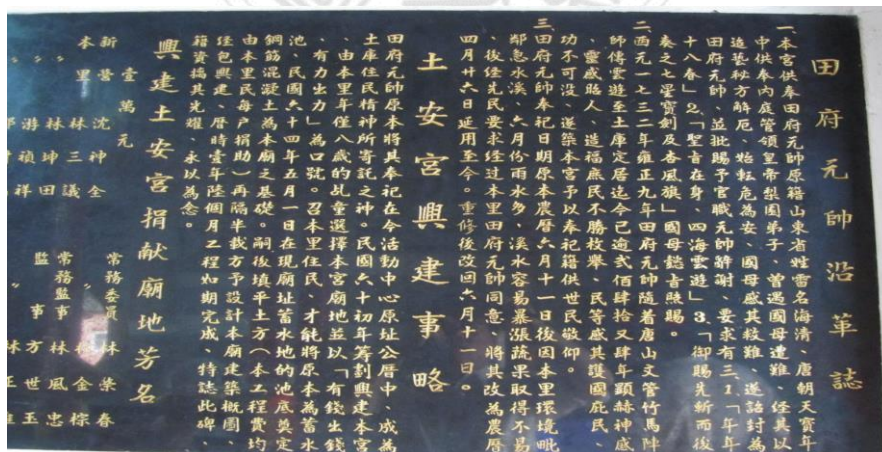 田府元帥沿革誌
一本宮供奉田府元帥原籍山東省姓雷名海清、唐朝天寶年
中供奉內庭管領皇帝梨園弟子、曾遇國母遭難、經其以
造藝秘方解厄、始轉危為安、國母感其救難、遂詔封為
田府元帥、並批賜予官職元帥辭謝、要求有三1.「年年
十八春」2.「聖旨在身、四海雲遊」3.「御賜先斬而後
奏之七星寶劍及香風旗」國母懿旨照賜。
二、西元一七三二年雍正九年田府元帥隨着唐山文管竹馬陣
師傅雲遊至土庫定居迄今已逾弍佰肆拾又肆年顯赫神感
、靈威昭人、造福庶民不勝枚舉、民等感其護國庇民、
功不可沒、遂築本宮予以奉祀籍供世民敬仰。
三田府元帥奉祀日期原本農曆六月十一日後因本里環境毗
鄰急水溪、六月份雨水多、溪水容易暴漲蔬果取得不易
、後經先民要求經过本里田府元帥同意、將其改為農曆
四月廿六日延用至今。重修後改回六月十一日。
土安宮興建事略
田府元帥原本將其奉祀在今活動中心原址公曆中、成為
土庫住民精神所寄託之神。民國六十初年籌劃興建本宮
、由本里年僅八歲的乩童選擇本宮廟地並以「有錢出錢
、有力出力」為口號。召本里住民、才能將原本為蓄水
池、民國六十四年五月一日在現廟址蓄水地的池底奠定
鋼筋混凝土為本廟之基礎。嗣後填平土方（本工程費均
由本里民每戶捐助）再隔半載方予設計本廟建築概圖、
經包興建、曆時壹年陸個月工程如期完成、特誌此碑、
籍資搞其光耀、永以為念。
興建土安宮捐献廟地芳名
壹萬元
新營 沈神全 常務委員 林榮春
本里 林三議 〃 林金棕
〃 林坤田 常務監事 林風忠
〃 游禎祥 監事 方世玉